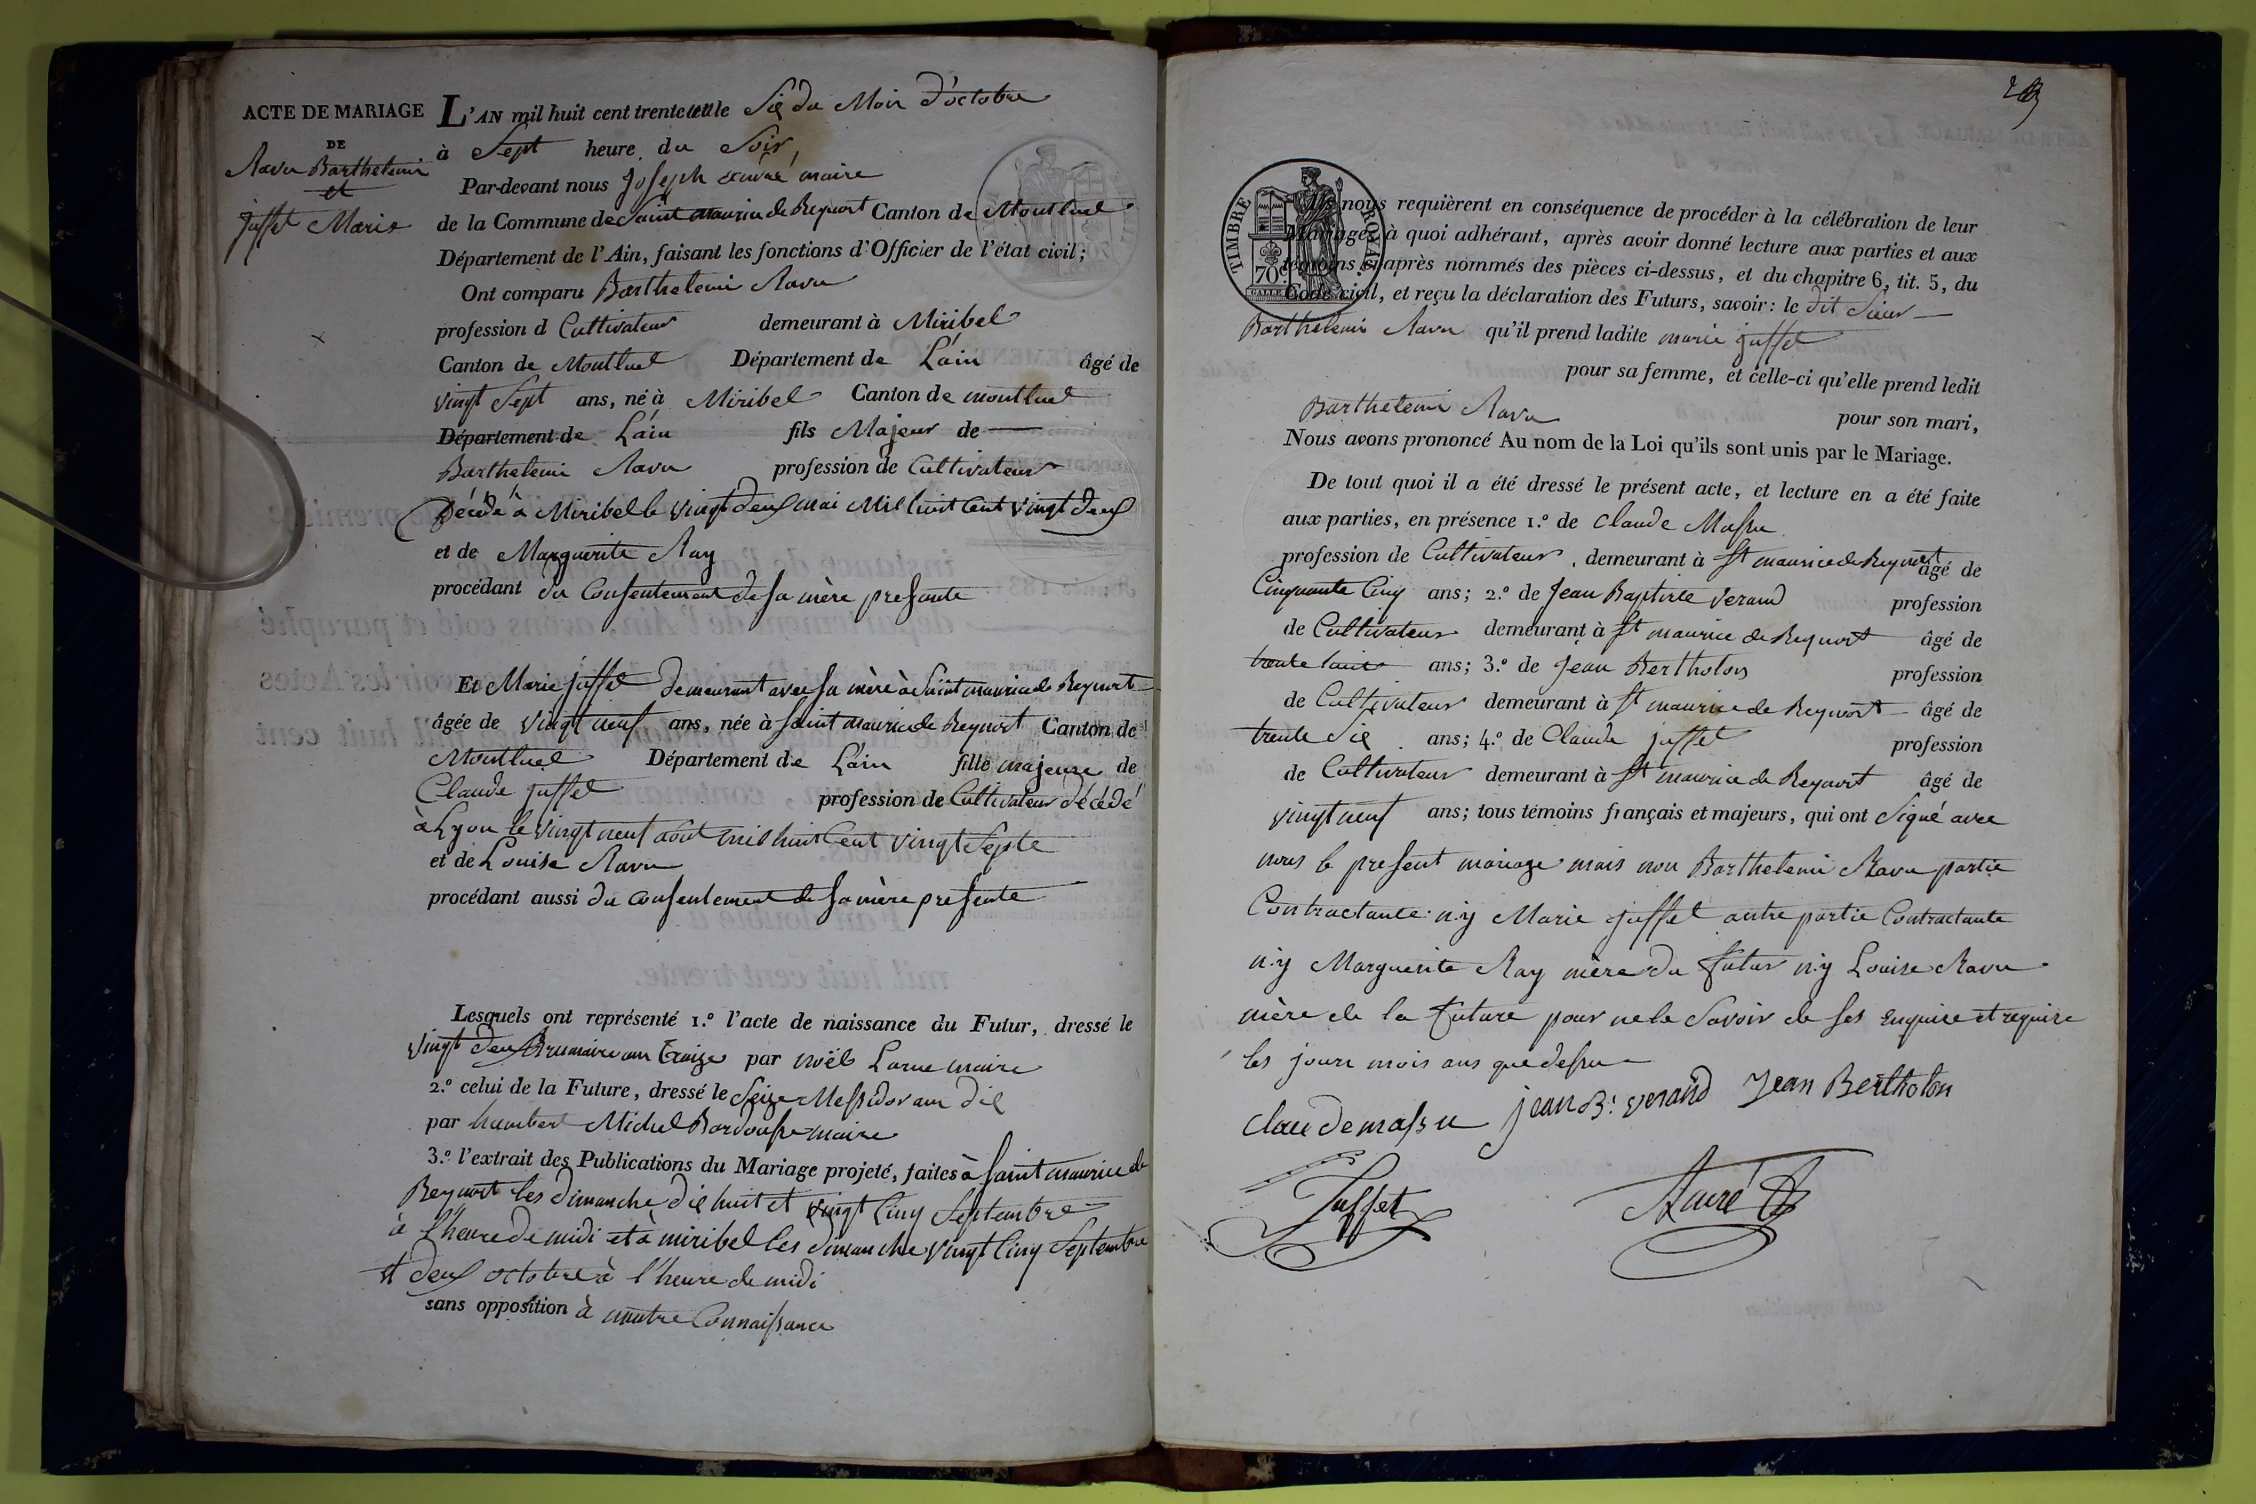 ACTE DE MARIAGE
DE
Ravu Barthelemi
et
Juffet Marie
L'AN mil huit cent trente et un le Six du Mois d'octobre
à Sept heure du Soir
Par-devant nous Joseph maire
de la Commune de Saint maurice de Beynost Canton de Montluel
Département de l'Ain, faisant les fonctions d'Officier de l'état civil;
Ont comparu Barthelemi Ravu
profession d Cultivateur demeurant à Miribel
Canton de Montluel Département de L'ain âgé de
vingt Sept ans, né à Miribel Canton de montluel
Département de L'ain fils Majeur de
Barthelemi Ravu profession de Cultivateur
Décédé à Miribel le vingt deux mai Mil huit Cent vingt deux
et de Marguerite Ray
procédant du Consentement de sa mère presante
Et Marie juffet demeurant avec sa mère à Saint maurice de Beynost
âgée de vingt neuf ans, née à Saint maurice de Beynost Canton de
Montluel Département de L'ain fille majeure de
Claude juffet profession de Cultivateur décédé
à Lyon le vingt neuf août mil huit Cent vingt Septe
et de Louise Ravu
procédant aussi du consentement de sa mère presente
Lesquels ont représenté 1.º l'acte de naissance du Futur, dressé le
vingt deux Brumaire an treize par noël Larue maire
2.º celui de la Future, dressé le Seize Messidor an dix
par humbert Michel maire
3.º l'extrait des Publications du Mariage projeté, faites à Saint maurice de
Beynost les dimanche dix huit et vingt Cinq Septembre
à l'heure de midi et à miribel les dimanche vingt Cinq Septembre
et deux octobre à l'heure de midi
sans opposition à nautre Connaissance
TIMBRE ROYAL
70
Ils nous requièrent en conséquence de procéder à la célébration de leur
Mariage; à quoi adhérant, après avoir donné lecture aux parties et aux
témoins ci-après nommés des pièces ci-dessus, et du chapitre 6, tit. 5, du
Code civil, et reçu la déclaration des Futurs, savoir: le dit Sieur
Barthelemi Ravu qu'il prend ladite marie juffet
pour sa femme, et celle-ci qu'elle prend ledit
Barthelemi Ravu pour son mari,
Nous avons prononcé Au nom de la Loi qu'ils sont unis par le Mariage.
De tout quoi il a été dressé le présent acte, et lecture en a été faite
aux parties, en présence 1.º de Claude Massu
profession de Cultivateur demeurant à St maurice de Beynost âgé de
Cinquante Cinq ans; 2.º de Jean Baptiste Verand profession
de Cultivateur demeurant à St maurice de Beynost âgé de
trente huit ans; 3.º de Jean Bertholon profession
de Cultivateur demeurant à St maurice de Beynost âgé de
trente Six ans; 4.º de Claude juffet profession
de Cultivateur demeurant à St maurice de Beynost âgé de
vingt neuf ans; tous témoins français et majeurs, qui ont Signé avec
nous le present mariage mais non Barthelemi Ravu partie
Contractante n'y Marie juffet autre partie Contractante
n'y Marguerite Ray mère du futur n'y Louise Ravu
mère de la future pour ne le Savoir de ses enquise et requise
les jours mois ans que dessu
Claudemassu jean B.t verand Jean Bertholon
Juffet